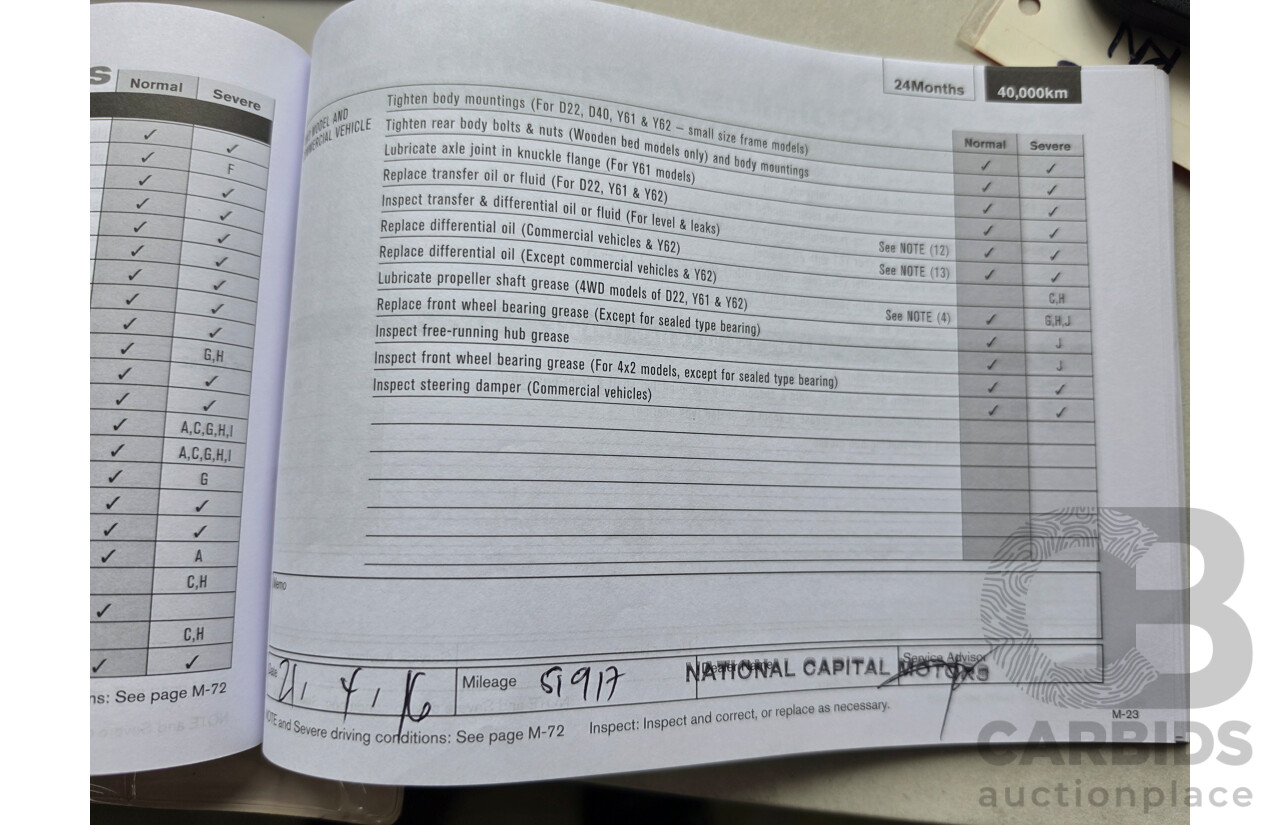 S Normal Severe
✓ ✓
✓ F
✓ ✓
✓ ✓
✓ ✓
✓ ✓
✓ ✓
✓ ✓
✓ G,H
✓ ✓
✓ ✓
✓ A,C,G,H,I
✓ A,C,G,H,I
✓ G
✓ ✓
✓ ✓
✓ A
C,H
✓
C,H
✓ ✓
ns: See page M-72
24Months 40,000km
MODEL AND
COMMERCIAL VEHICLE
Normal Severe
Tighten body mountings (For D22, D40, Y61 & Y62 – small size frame models) ✓ ✓
Tighten rear body bolts & nuts (Wooden bed models only) and body mountings ✓ ✓
Lubricate axle joint in knuckle flange (For Y61 models) ✓ ✓
Replace transfer oil or fluid (For D22, Y61 & Y62) ✓ ✓
Inspect transfer & differential oil or fluid (For level & leaks) See NOTE (12) ✓ ✓
Replace differential oil (Commercial vehicles & Y62) See NOTE (13) ✓ ✓
Replace differential oil (Except commercial vehicles & Y62) C,H
Lubricate propeller shaft grease (4WD models of D22, Y61 & Y62) See NOTE (4) ✓ G,H,J
Replace front wheel bearing grease (Except for sealed type bearing) ✓ J
Inspect free-running hub grease ✓ J
Inspect front wheel bearing grease (For 4x2 models, except for sealed type bearing) ✓ ✓
Inspect steering damper (Commercial vehicles) ✓ ✓
Memo
Date 21, 4, 16 Mileage 51917 Dealer Name NATIONAL CAPITAL MOTORS Service Advisor
NOTE and Severe driving conditions: See page M-72 Inspect: Inspect and correct, or replace as necessary.
M-23
CARBIDS
auctionplace